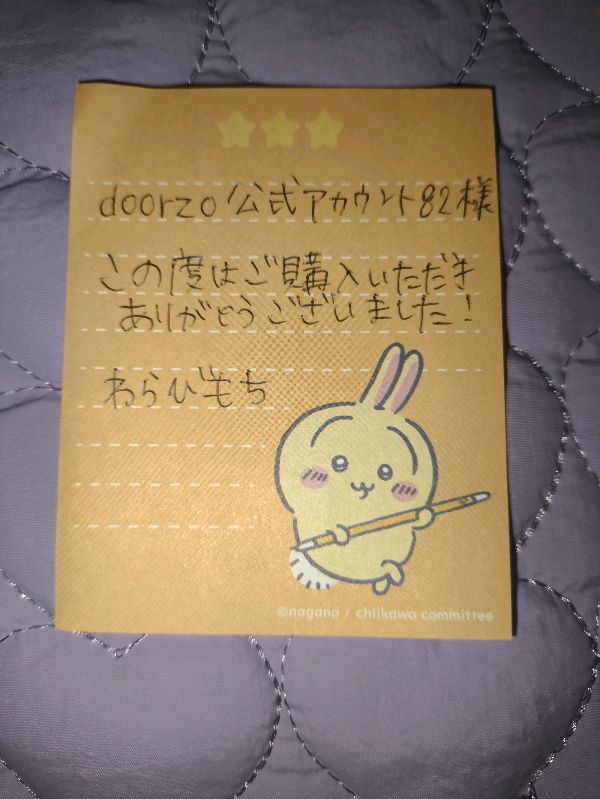 doorzo公式アカウント82様
この度はご購入いただき
ありがとうございました!
わらびもち
©nagano / chiikawa committee